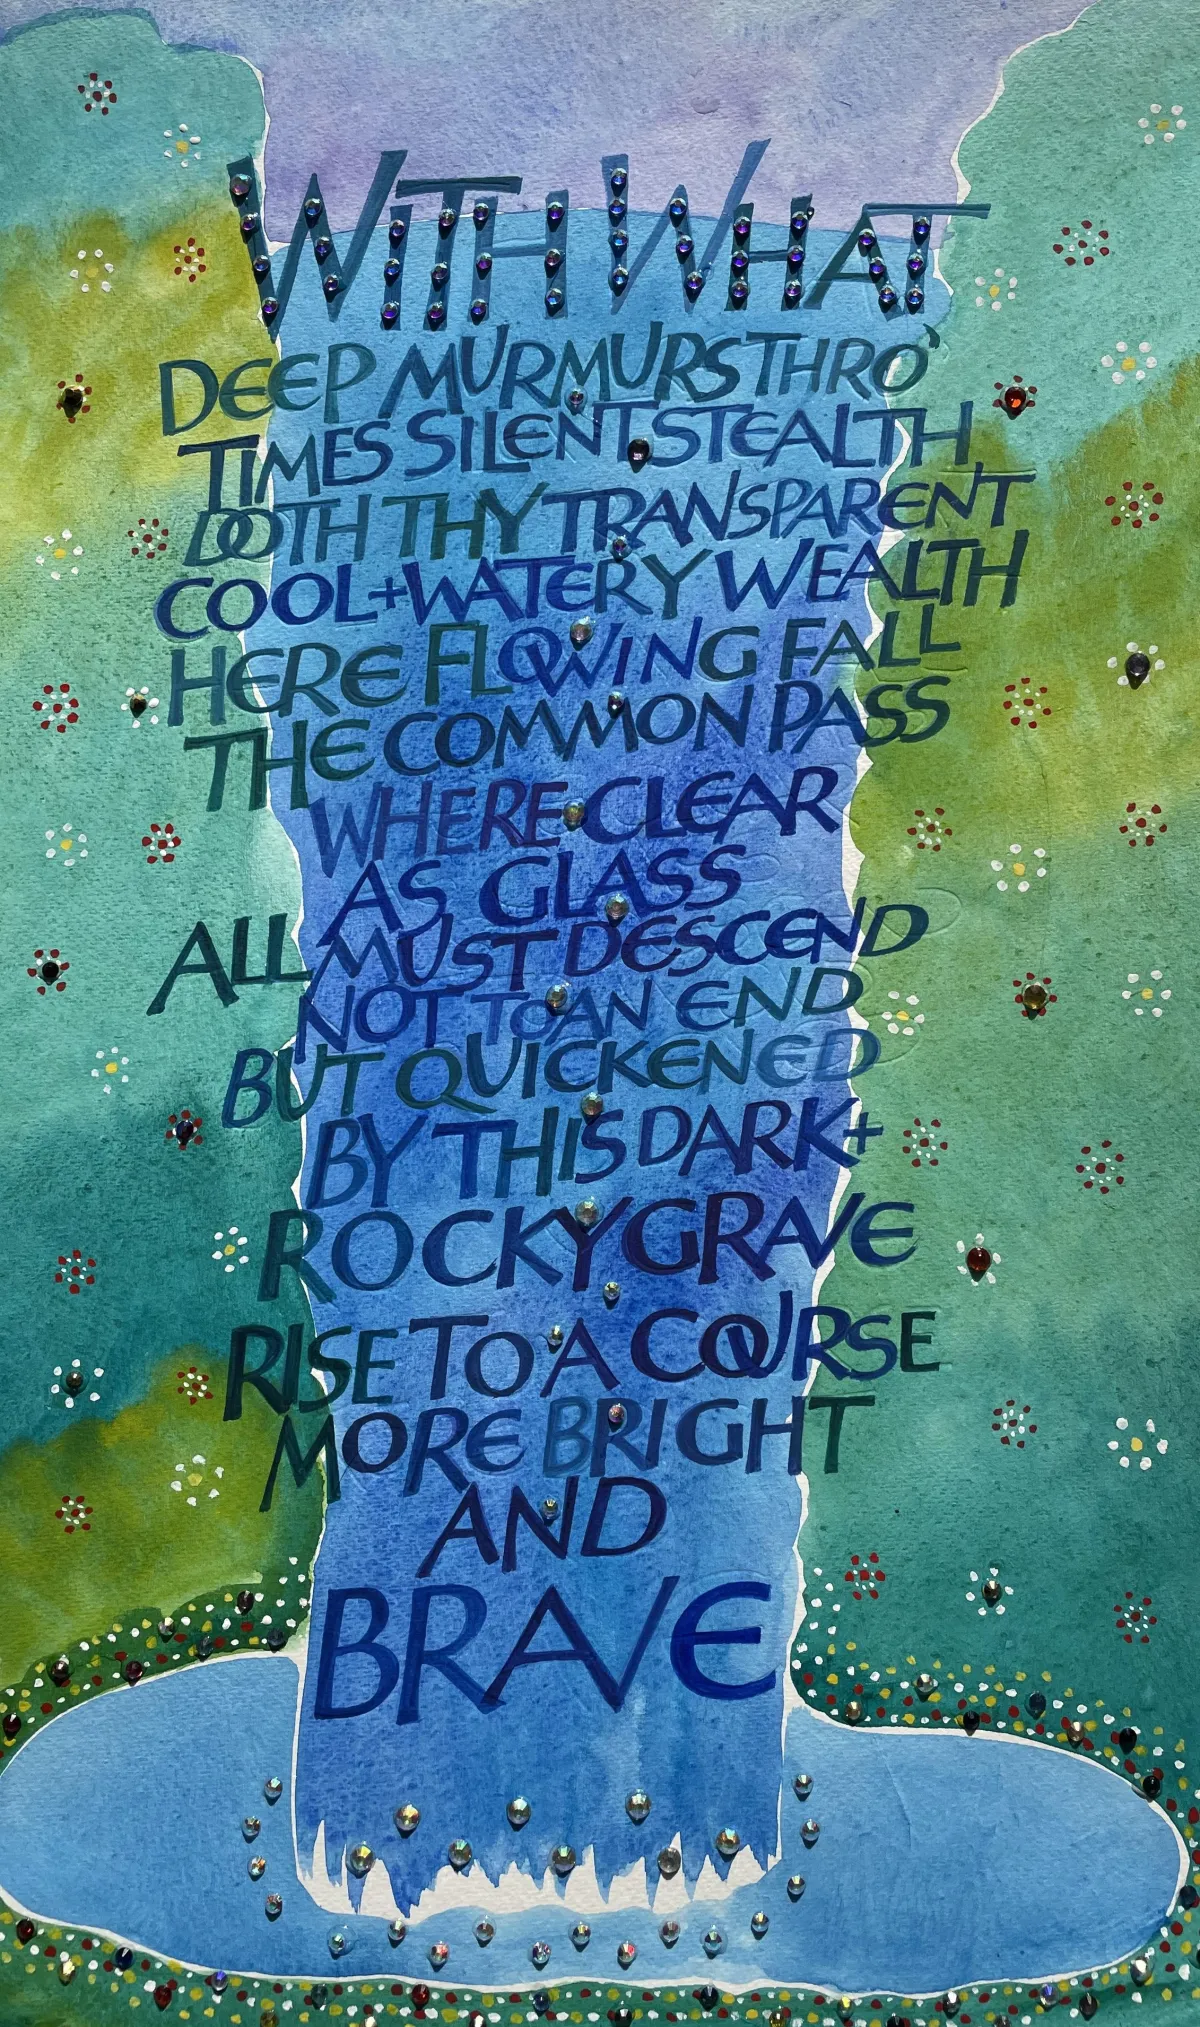 WITH WHAT
DEEP MURMURS THRO'
TIMES SILENT STEALTH
DOTH THY TRANSPARENT
COOL + WATERY WEALTH
HERE FLOWING FALL
THE COMMON PASS
WHERE CLEAR
AS GLASS
ALL MUST DESCEND
NOT TO AN END
BUT QUICKENED
BY THIS DARK +
ROCKY GRAVE
RISE TO A COURSE
MORE BRIGHT
AND
BRAVE